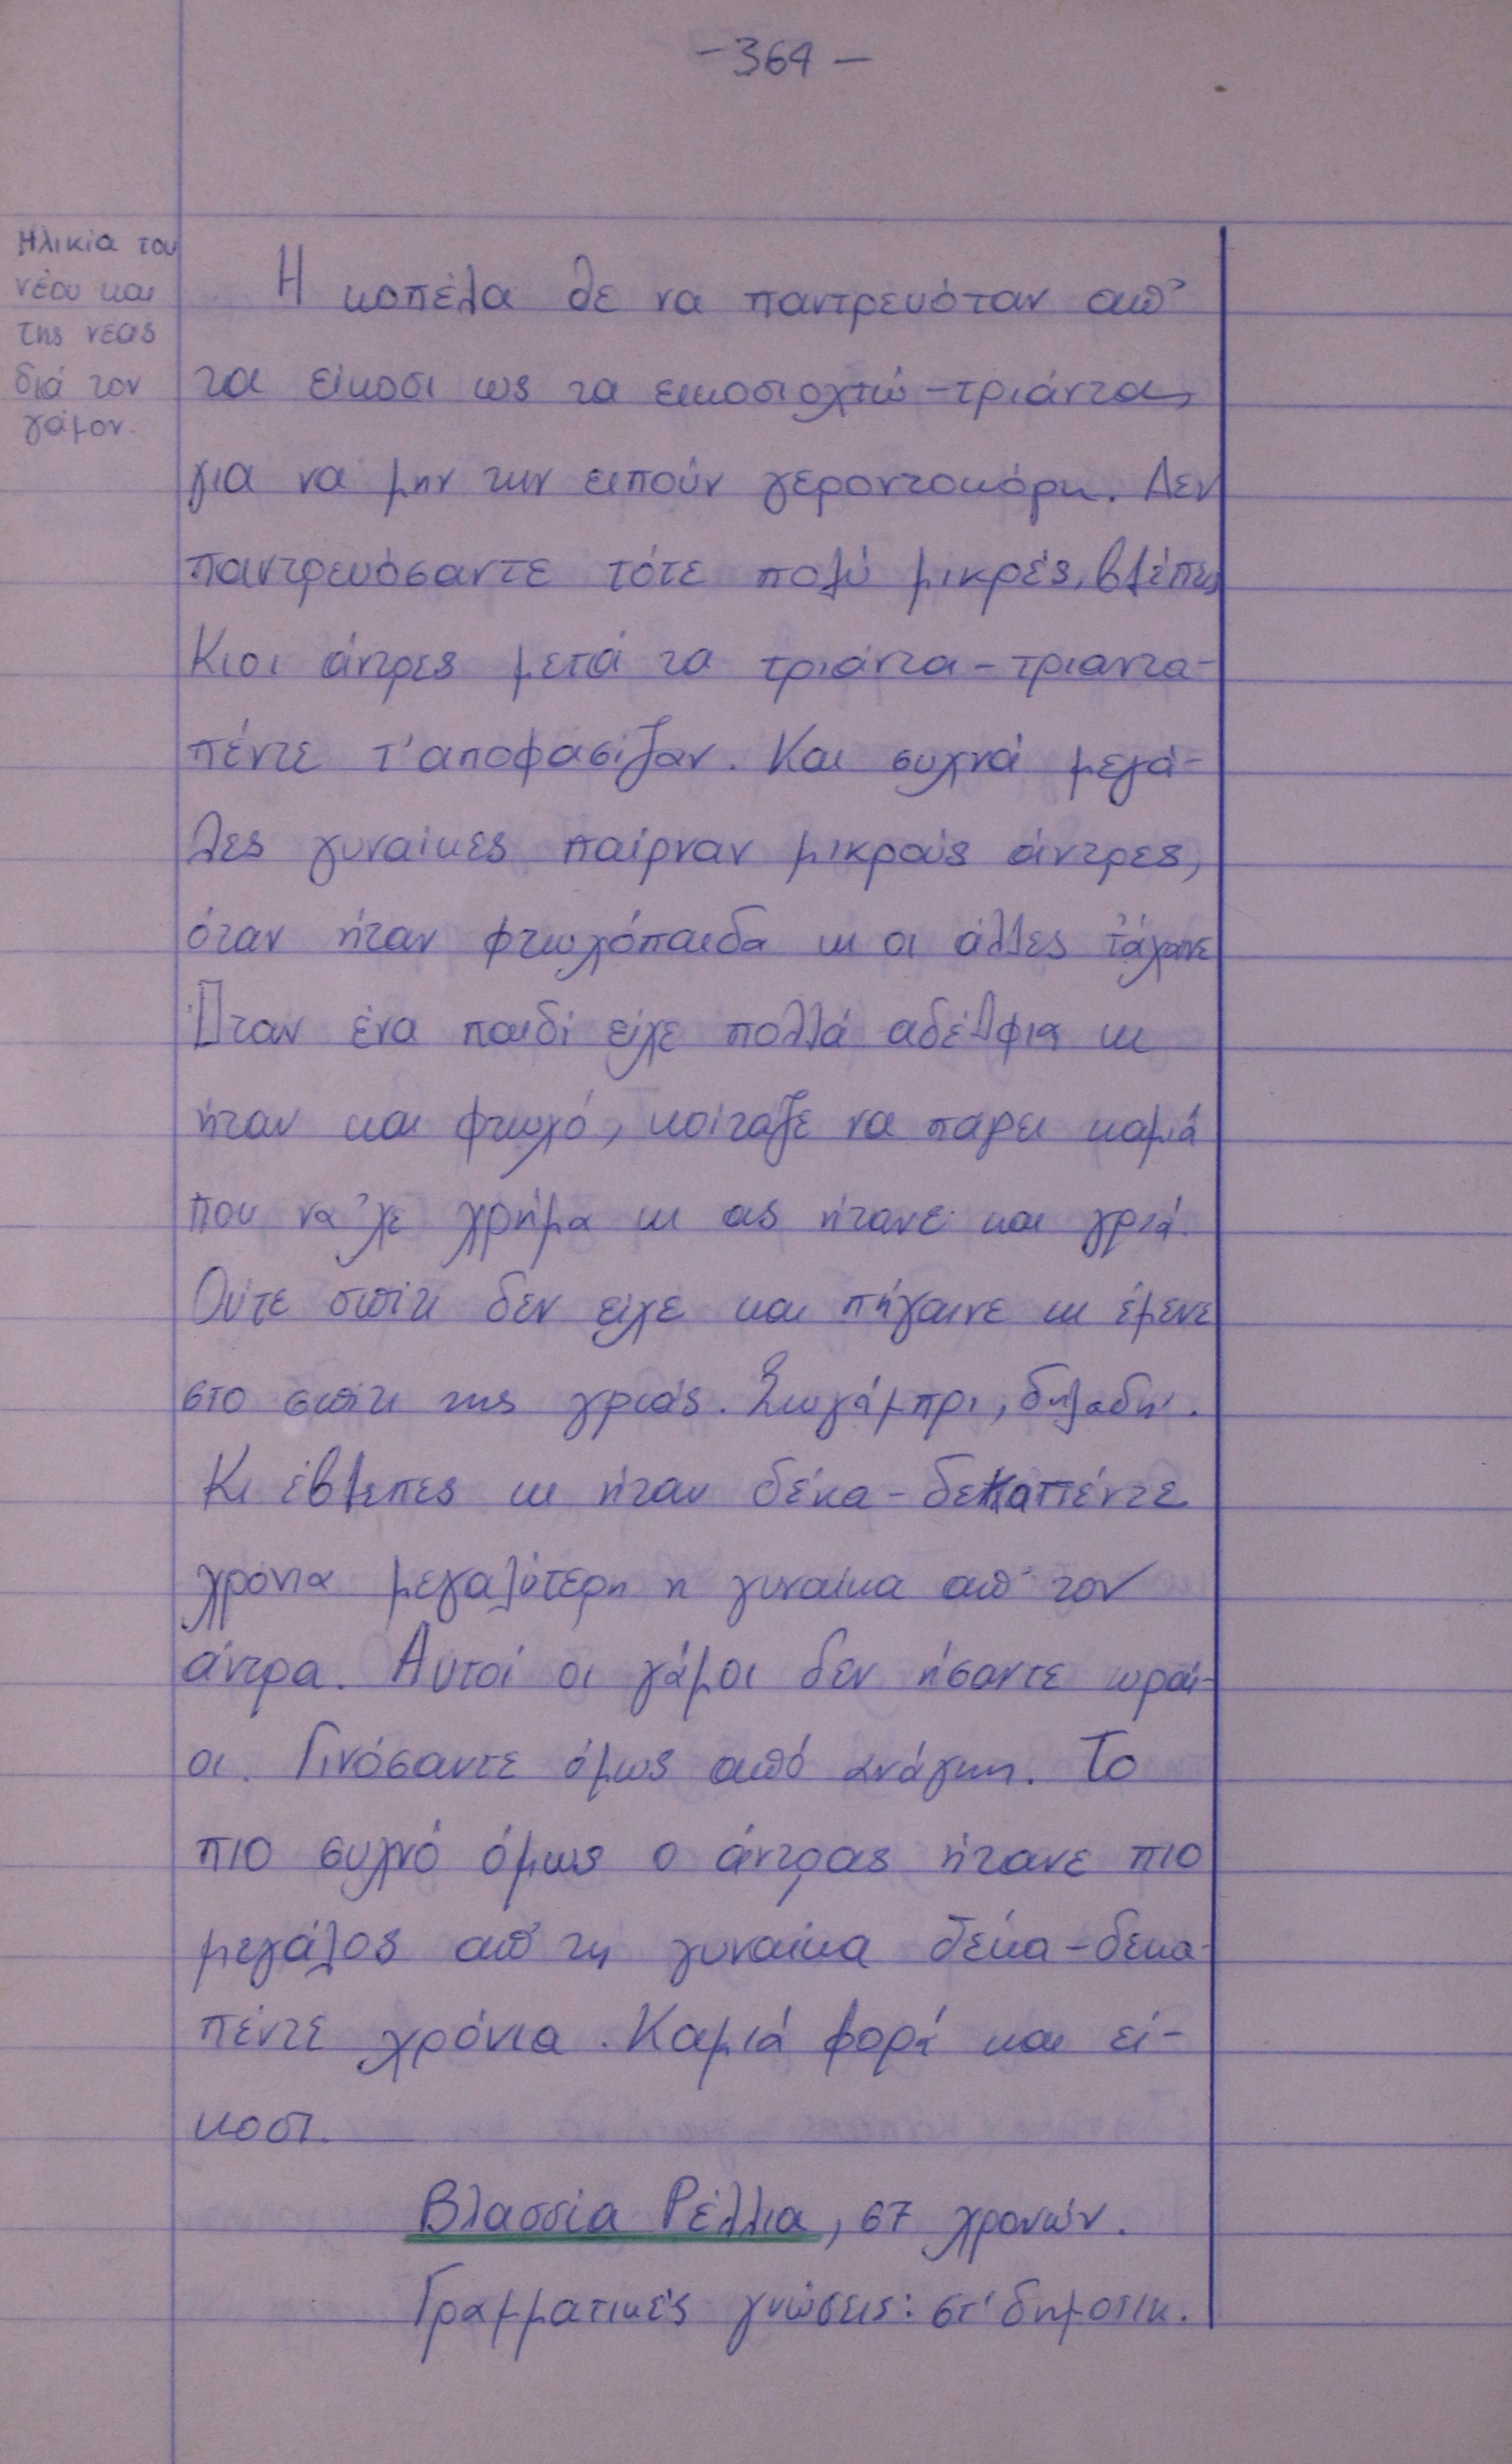 -364-
Ηλικία του
νέου και
της νέας
διά τον
γάμον.
Η κοπέλα θε να παντρευόταν απ'
τα είκοσι ως τα εικοσιοχτώ-τριάντα,
για να μην την ειπούν γεροντοκόρη. Δεν
παντρευόσαντε τότε πολύ μικρές, βλέπεις
Κιοι άντρες μετά τα τριάντα-τριαντα-
πέντε τ'αποφασίζαν. Και συχνά μεγά-
λες γυναίκες παίρναν μικρούς άντρες,
όταν ήταν φτωχόπαιδα κι οι άλλες τάχανε
Όταν ένα παιδί είχε πολλά αδέλφια κι
ήταν και φτωχό, κοίταζε να πάρει καμιά
που να'χε χρήμα κι ας ήτανε και γριά.
Ούτε σπίτι δεν είχε και πήγαινε κι έμενε
στο σπίτι της γριάς. Σωγάμπρι, δηλαδή.
Κι έβλεπες κι ήταν δέκα-δεκαπέντε
χρόνια μεγαλύτερη η γυναίκα απ' τον
άντρα. Αυτοί οι γάμοι δεν ήσαντε ωραί-
οι. Γινόσαντε όμως από ανάγκη. Το
πιο συχνό όμως ο άντρας ήτανε πιο
μεγάλος απ' τη γυναίκα δέκα-δεκα-
πέντε χρόνια. Καμιά φορά και εί-
κοσι.
Βλασσία Ρέλλια, 67 χρονών.
Γραμματικές γνώσεις: στ' δημοτικ.